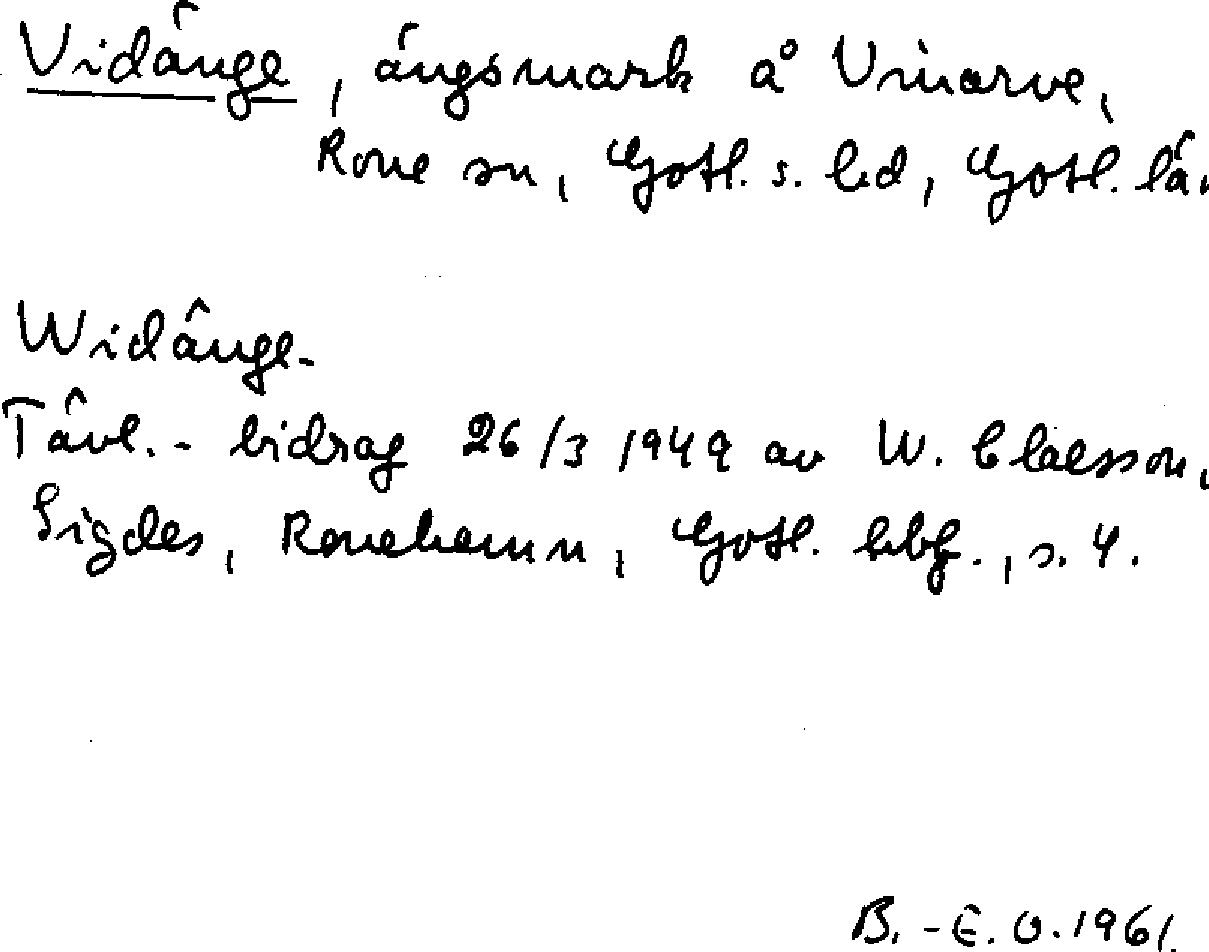 Vidänge, ängsmark å Uniarve,
Rone sn, Gotl. s. hd, Gotl. lä.
Widänge.
Tävl.-bidrag 26/3 1949 av W. Claesson,
Sigdes, Ronehamn, Gotl. hbf., s. 4.
B.-E. O. 1961.